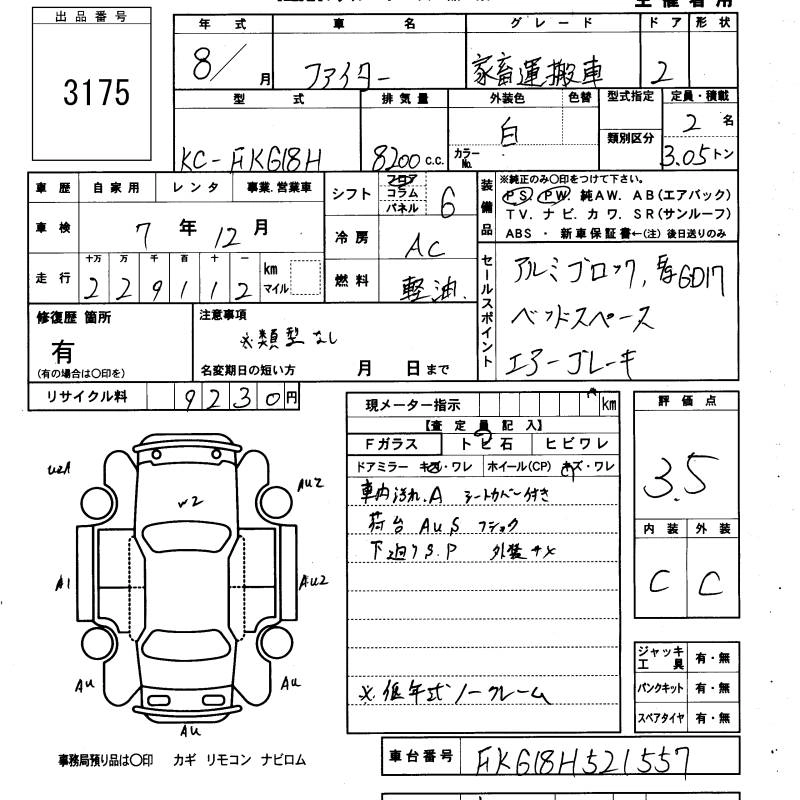 出品番号
3175
年式 車名 グレード ドア 形状
8/月 ファイター 家畜運搬車 2
型式 排気量 外装色 色替 型式指定 定員・積載
類別区分
KC-FK618H 8200 c.c. 白 カラーNo. 2名
3.05トン
車歴 自家用 レンタ 事業.営業車
車検 7年12月
走行 十万 万 千 百 十 一 km マイル
2 2 9 1 1 2
シフト フロア コラム パネル 6
冷房 AC
燃料 軽油
装備品
※純正のみ〇印をつけて下さい。
PS. PW. 純AW. AB(エアバック)
TV. ナビ. カワ. SR(サンルーフ)
ABS ・ 新車保証書←(注) 後日送りのみ
セールスポイント
アルミブロック, 6D17
ベッドスペース
エアーブレーキ
修復歴 箇所
有
(有の場合は〇印を)
注意事項
※類型なし
名変期日の短い方 月 日まで
リサイクル料 9230円
現メーター指示 km
【査定員記入】
Fガラス トビ石 ヒビワレ
ドアミラー キズ・ワレ ホイール(CP) キズ・ワレ
車内汚れ.A シートカバー付き
荷台 AUS フショク
下廻りS.P 外装サメ
※低年式ノークレーム
評価点
3.5
内装 外装
C C
ジャッキ工具 有・無
パンクキット 有・無
スペアタイヤ 有・無
U2A
W2
AU2
A1
AU2
AU
AU
AU
事務局預り品は〇印 カギ リモコン ナビロム
車台番号 FK618H521557